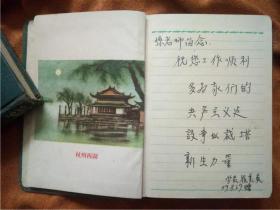 杭州西湖
您老师留念:
祝您工作顺利
多为我们的
共产主义建
设事业栽培
新生力量
学生